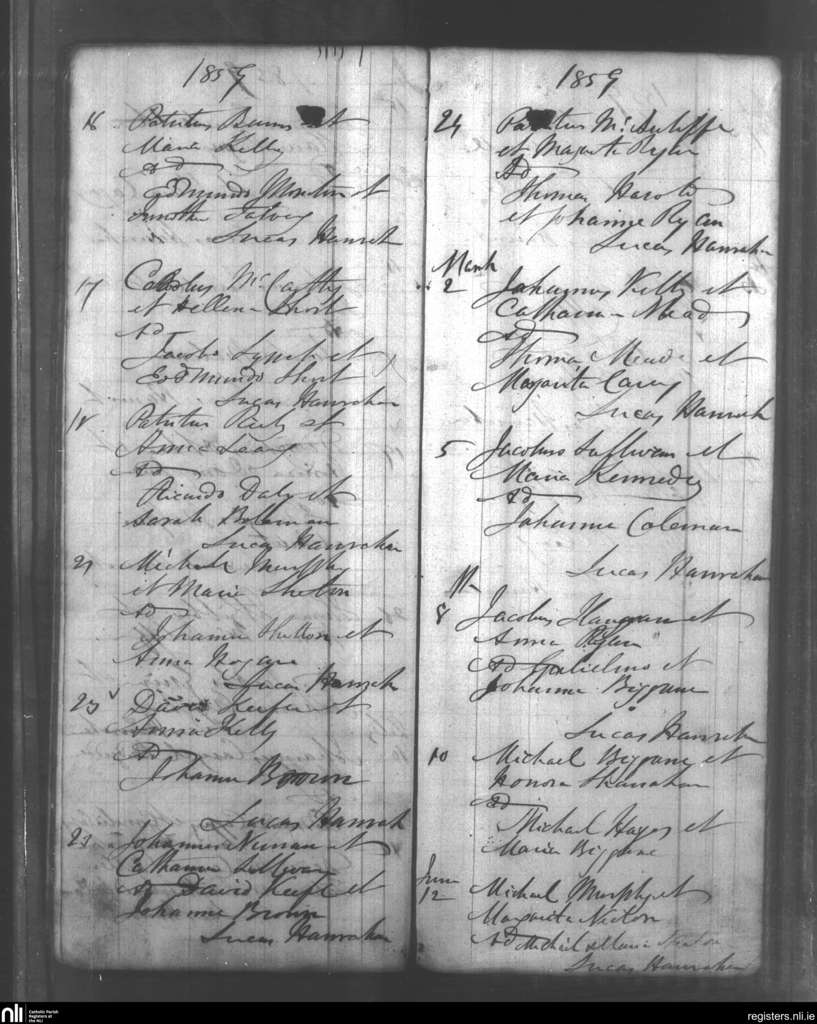 1859
16 Patritius Burns et
Maria Kelly
Ad
Edmundo et
Lucas Hanrahan
17 Carolus McCarthy
et Hellena Short
Ad
Jacobo Lynch et
Eodmundo Short
Lucas Hanrahan
18 Patritius et
Anne Leary
Ad
Ricardo Daly et
Sarah
Lucas Hanrahan
21 Michael Murphy
et Maria Shelton
Ad
Johanne Shelton et
Anna Hogan
Lucas Hanrahan
23 David Keefe et
Anna Kelly
Ad
Johanna Brown
Lucas Hanrahan
23 Johannes Nunan et
Catharina Sullivan
Ad David Keefe et
Johanna Brown
Lucas Hanrahan
1859
24 Patritius McAuliffe
et Margarita Ryan
Ad
Thoma Harold
et Johanne Ryan
Lucas Hanrahan
March
2 Johannes Kelly et
Catharina Mead
Ad
Thoma Meade et
Margarita Carey
Lucas Hanrahan
5 Jacobus Sullivan et
Maria Kennedy
Ad
Johanna Coleman
Lucas Hanrahan
8 Jacobus et
Anna Ryan
Ad Gulielmo et
Johanna Biggane
Lucas Hanrahan
10 Michael Biggane et
Honora Shanahan
Ad
Michael Hayes et
Maria Biggane
June
12 Michael Murphy et
Margarita
Ad Michael & Maria
Lucas Hanrahan
nli
Catholic Parish
Registers at
the NLI
registers.nli.ie